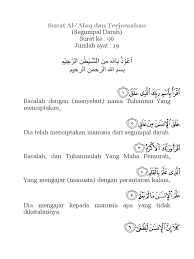 Surat Al-'Alaq dan Terjemahan
(Segumpal Darah)
Surat ke : 96
Jumlah ayat : 19
أعوذ بالله من الشيطن الرجيم
بسم الله الرحمن الرحيم
اقرأ باسم ربك الذي خلق
Bacalah dengan (menyebut) nama Tuhanmu Yang
menciptakan,
خلق الإنسان من علق
Dia telah menciptakan manusia dari segumpal darah.
اقرأ وربك الأكرم
Bacalah, dan Tuhanmulah Yang Maha Pemurah,
Yang mengajar (manusia) dengan perantaran kalam,
علم الإنسان ما لم يعلم
Dia mengajar kepada manusia apa yang tidak
diketahuinya.
كلا إن الإنسان ليطغى